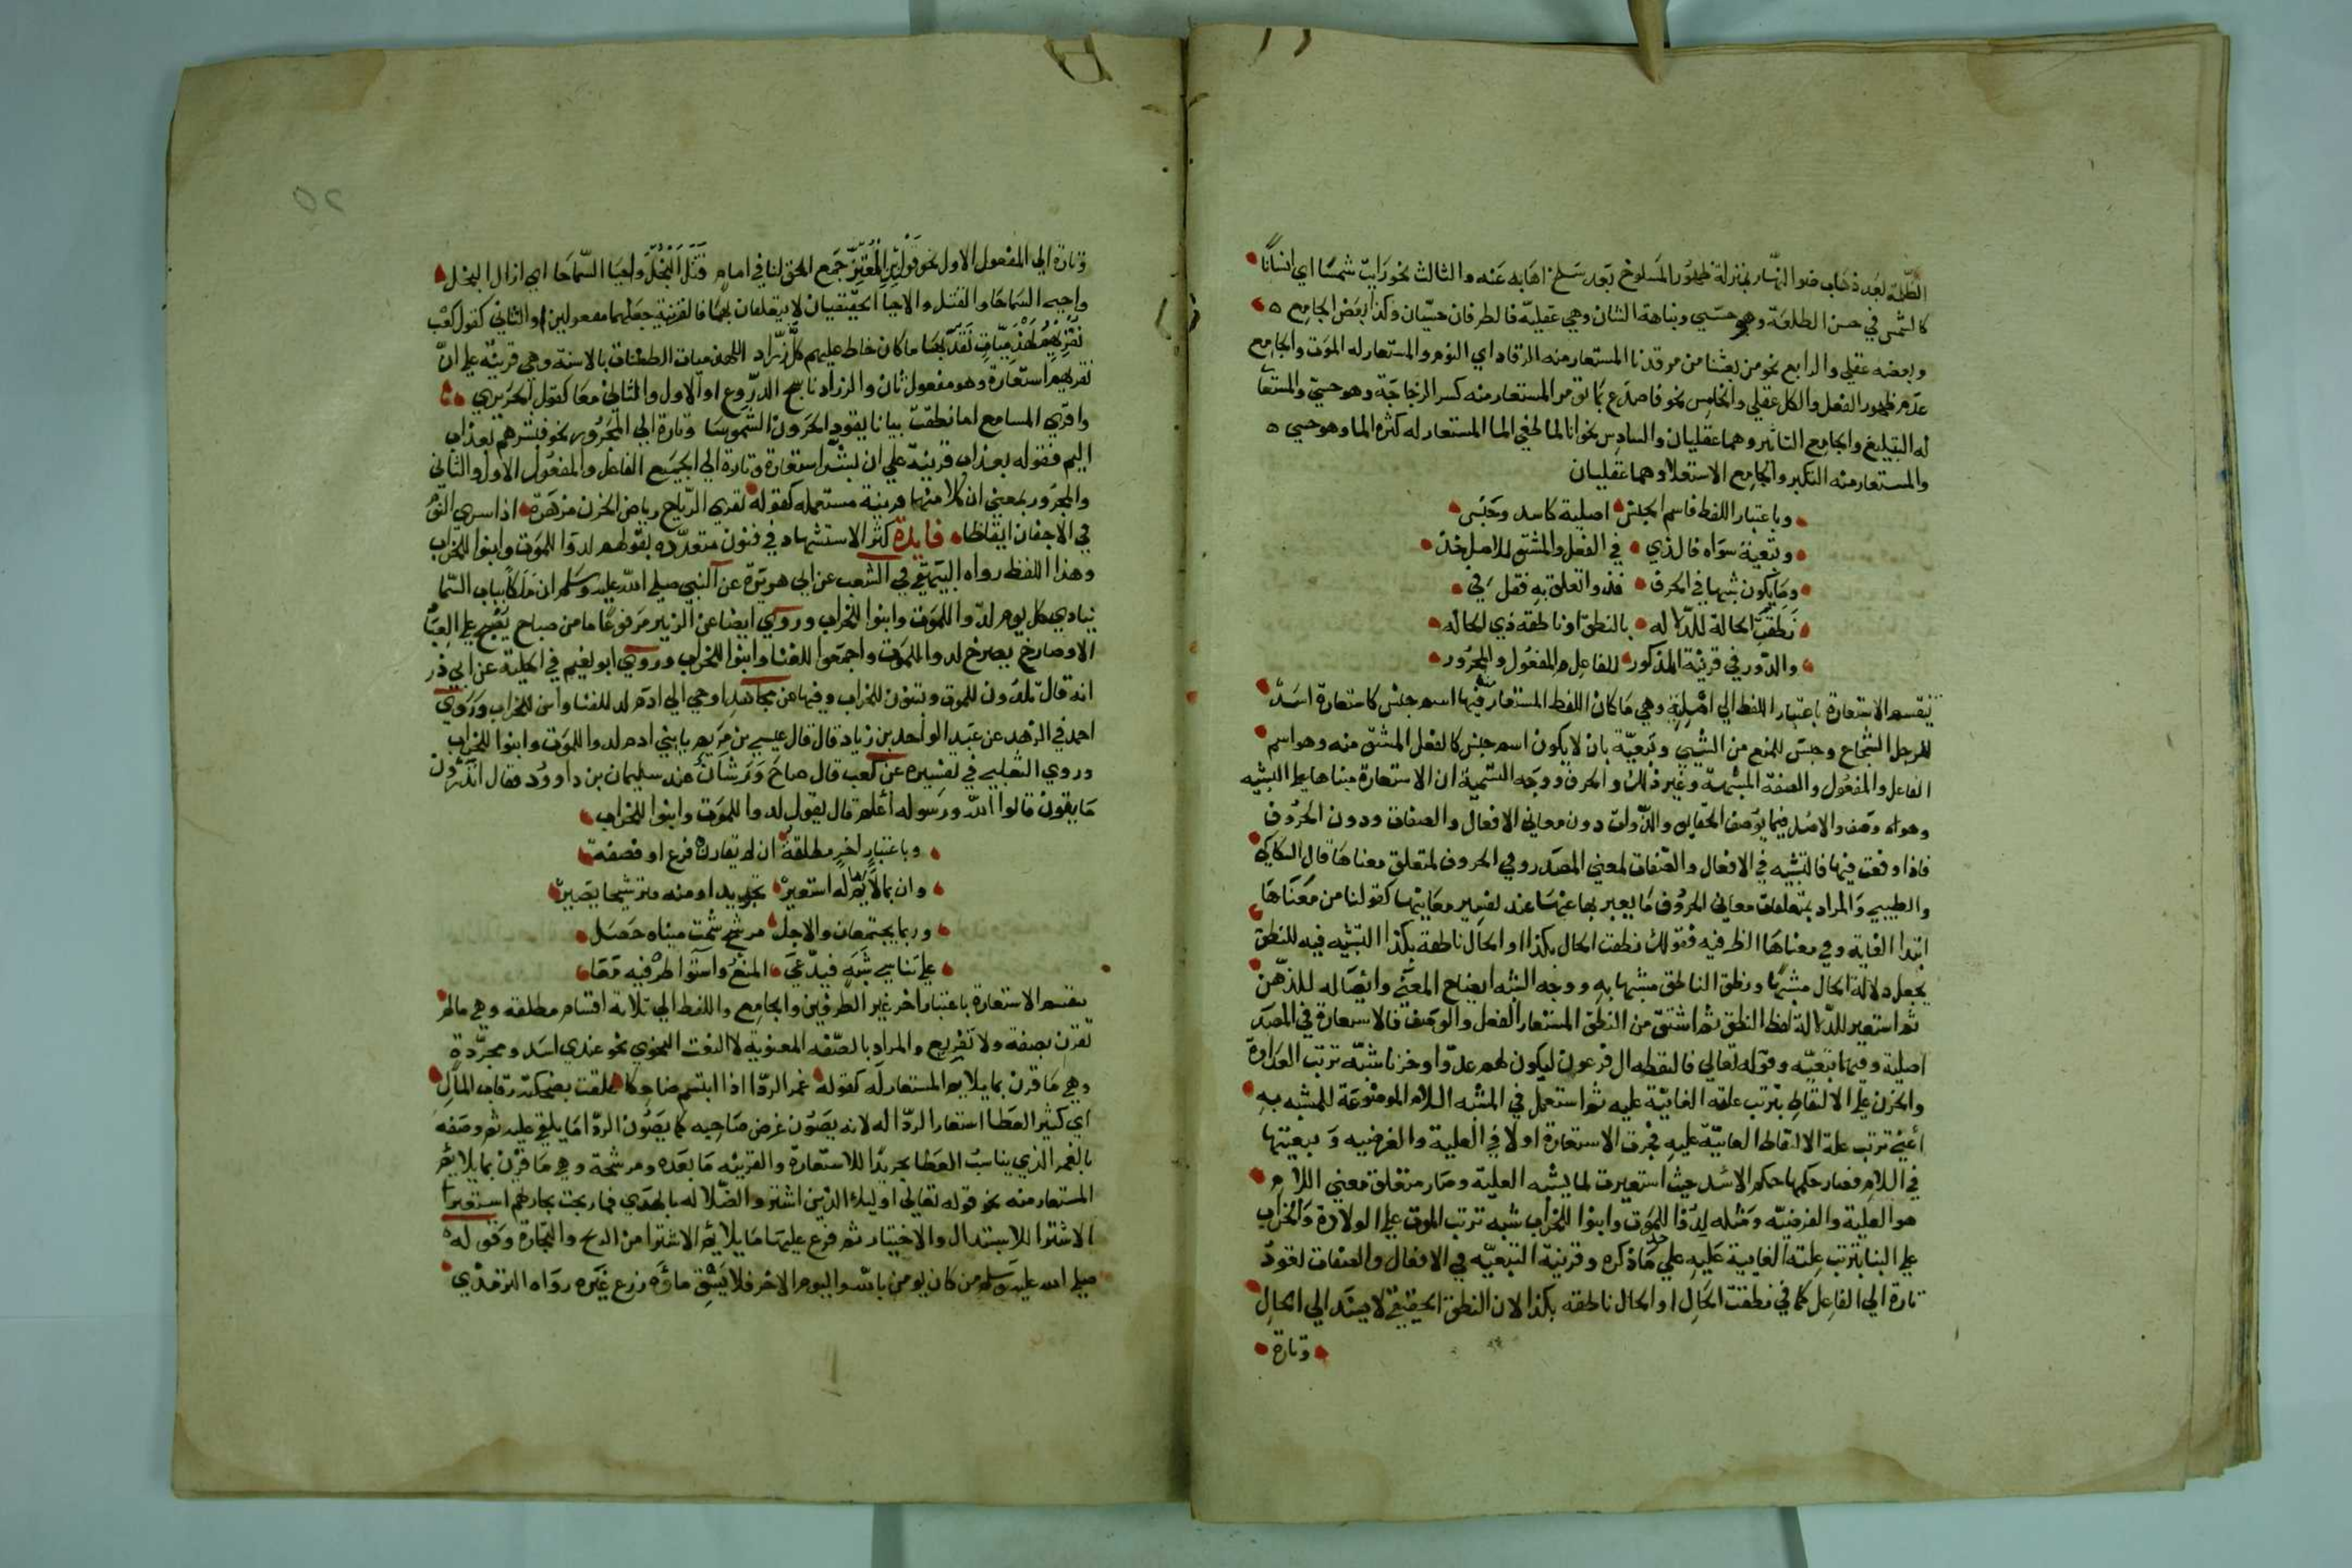 الظلمة بعد ذهاب ضوا النهار بمنزلة ظهور المسلوخ بعد سلخ اهابه عنه والثالث نحو رايت شمسا اي انسانا
كالشمس في حسن الطلعة وهو حسي ونباهة الشان وهي عقلية فالطرفان حسيان وكذا بعض الجامع
وبعضه عقلي والرابع نحو من بعثنا من مرقدنا المستعار منه الرقاد اي النوم والمستعار له الموت والجامع
عدم ظهور الفعل والكل عقلي والخامس نحو فاصدع بما تؤمر المستعار منه كسر الزجاجة وهو حسي والمستعا
له التبليغ والجامع التاثير وهما عقليان والسادس نحو انا لما طغي الما المستعار له كثرة الما وهو حسي
والمستعار منه التكبر والجامع الاستعلا وهما عقليان
وباعتبار اللفظ فاسم الجنس اصلية كاسد وحبس
وتبعية سواه فالذي في الفعل والمشتق للاصل خذ
وما يكون شبها في الحرف فذو اتعلق به فقل في
نطقت الحالة للدلاله بالنطق او ناطقة ذي الحاله
والدور في قرنية المذكور للفاعل والمفعول والمجرور
تنقسم الاستعارة باعتبار اللفظ الي اصلية وهي ما كان اللفظ المستعار فيها اسم جنس كاستعارة اسد
للرجل الشجاع وحبس للمنع من الشي وتبعية بان لا يكون اسم جنس كالفعل المشتق منه وهو اسم
الفاعل والمفعول والصفة المشبهة وغير ذلك والحرف ووجه التسمية ان الاستعارة مبناها علي التشبيه
وهو اه وصف والاصل فيما يوصف الحقايق والذوات دون معاني الافعال والصفات ودون الحروف
فاذا وقعت فيها فالتشبيه في الافعال والصفات لمعني المصدر وفي الحروف لمتعلق معناها قال السكاكي
والطيبي والمراد بمتعلقات معاني الحروف ما يعبر بها عنها عند تفسير معانيها كقولنا من معناها
ابتدا الغاية وفي معناها الظرفيه فقولك نطقت الحال بكذا او الحال ناطقة بكذا التشبيه فيه للنطق
يجعل دلالة الحال مشبها ونطق الناطق مشبها به ووجه الشبه ايضاح المعني وايصاله للذهن
ثم استعير للدلالة لفظ النطق ثم اشتق من النطق المستعار الفعل والوصف فالاستعارة في المصدر
اصلية وفيهما تبعيه وقوله تعالي فالتقطه ال فرعون ليكون لهم عدوا وحزنا شبه ترتب العداوة
والحزن علي الالتقاط بترتب علته الغائية عليه ثم استعمل في المشبه اللام الموضوعة للمشبه به
أعني ترتب علة الالتقاط الغائية عليه فجرت الاستعارة اولا في العلية والغرضيه وبتبعيتها
في اللام فصار حكمها حكم الاسد حيث استعيرت لما يشبه العلية وصار متعلق معني اللام
هو العلية والغرضيه ومثله لدوا للموت وابنوا للخراب شبه ترتب الموت علي الولادة والخراب
علي البنا بترتب علته الغايية عليه علي حد ما ذكره وقرنية التبعيه في الافعال والصفات تعود
تارة الي الفاعل كما في نطقت الحال او الحال ناطقه بكذا لان النطق الحقيقي لا يسند الي الحال
وتارة
وتارة الي المفعول الاول نحو قول ابن المعتز جمع الحق لنا في امام قتل البخل واحيا السماحا اي ازال البخل
واحيي السماحا والقتل والاحيا الحقيقيان لا يتعلقان بهما فالقرنية جعلهما مفعولين او الثاني كقول كعب
نقريهم لهذميات نقد بها ما كان خاط عليهم كل زراد اللهذميات الطعنات بالاسنة وهي قرينة علي ان
نقريهم استعارة وهو مفعول ثان والزراد ناسج الدروع او الاول والثاني معا كقول الحريري
واقري المسامع اما نطقت بيانا يقود الحرون الشموسا وتارة الي المجرور نحو فبشرهم بعذاب
اليم فقوله بعذاب قرينة علي ان بشر استعارة وتارة الي الجميع الفاعل والمفعول الاول والثاني
والمجرور بمعني ان كلا منها قرينة مستعمله كقوله تقري الرياح رياض الحزن مزهرة اذا سري النوم
في الاجفان ايقاظا فايدة كثر الاستشهاد في فنون متعدده بقولهم لدوا للموت وابنوا للخراب
وهذا اللفظ رواه البيهقي في الشعب عن ابي هريرة عن النبي صلي الله عليه وسلم ان ملكا بباب السما
ينادي كل يوم لدوا للموت وابنوا للخراب وروي ايضا عن الزبير مرفوعا ما من صباح يصبح علي العباد
الا وصارخ يصرخ لدوا للموت واجمعوا للفنا وابنوا للخراب وروي ابو نعيم في الحلية عن ابي ذر
انه قال تلدون للموت وتبنون للخراب وفيها عن مجاهد اوحي الي ادم لد للفنا وابن للخراب وروي
احمد في الزهد عن عبد الواحد بن زياد قال قال عيسي بن مريم يا بني ادم لدوا للموت وابنوا للخراب
وروي الثعلبي في تفسيره عن كعب قال صاح ورشان عند سليمان بن داوود فقال اتدرون
ما يقون قالوا الله ورسوله أعلم قال يقول لدوا للموت وابنوا للخراب
وباعتبار اخر مطلقة ان لم تقارن فرع او فصفة
وان بما لايم له استعير تجريد او منه فترشيحا يصير
وربما يجتمعان والاجل مرشح شمت مبناه حصل
علي تناسي شبه فيدعي المنع واستوا طرفيه معا
تنقسم الاستعارة باعتبار اخر غير الطرفين والجامع واللفظ الي ثلاثة اقسام مطلقه وهي مالم
تقرن بصفة ولا تفريع والمراد بالصفه المعنوية لا النعت النحوي نحو عندي اسد ومجردة
وهي ما قرن بما يلايم المستعار له كقوله غمر الردا اذا ابتسم ضاحكا علقت بضحكته رقاب المال
اي كثير العطا استعار الردا له لانه يصون عرض صاحبه كما يصون الردا ما يلقي عليه ثم وصفه
بالغمر الذي يناسب العطا تجريدا للاستعارة والقرينه ما بعده ومرشحة وهي ما قرن بما يلايم
المستعار منه نحو قوله تعالي اوليك الذين اشتروا الضلاله بالهدي فما ربحت تجارتهم استعير
الاشترا للاستبدال والاختيار ثم فرع عليها ما يلايم الاشترا من الربح والتجارة وقوله
صلي الله عليه وسلم من كان يومن بالله واليوم الاخر فلا يسق ماؤه زرع غيره رواه الترمذي